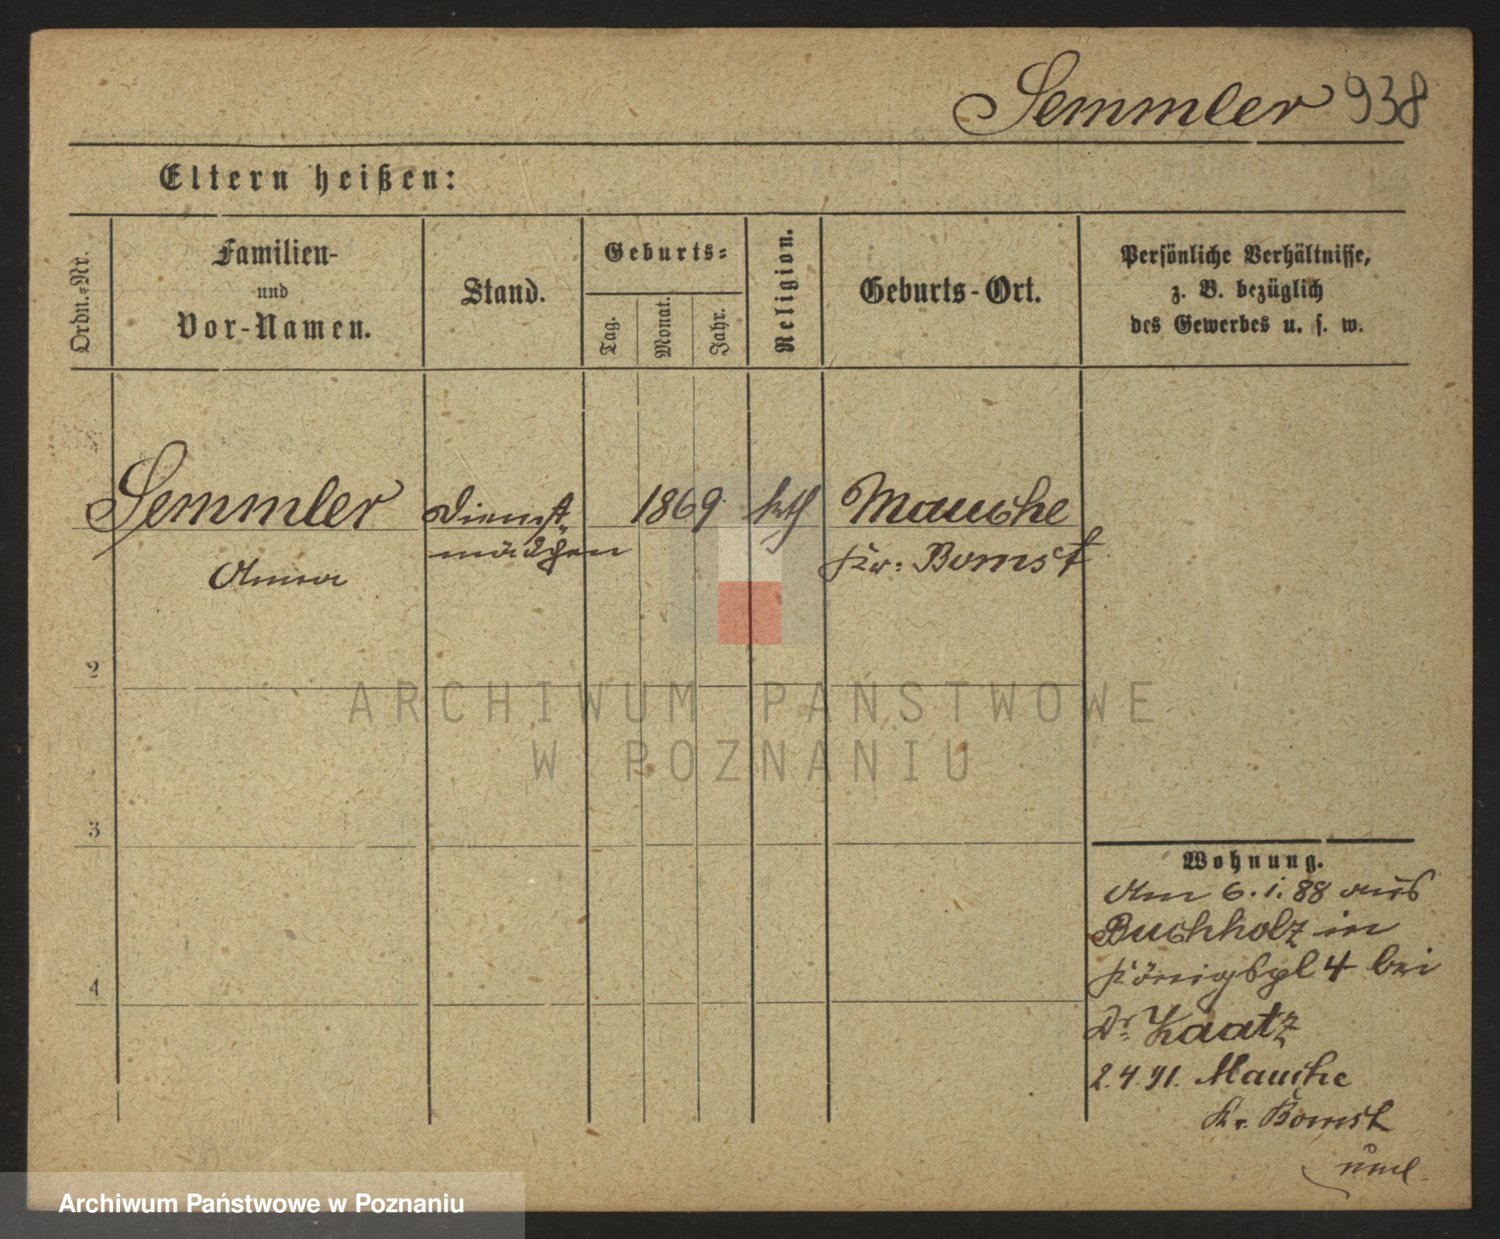 Semmler 938
Eltern heißen:
Ordn.=Nr.
Familien-
und
Vor-Namen.
Stand.
Geburts=
Tag.
Monat.
Jahr.
Religion.
Geburts-Ort.
Persönliche Verhältnisse,
z. B. bezüglich
des Gewerbes u. s. w.
Semmler
Anna
Dienst-
mädchen
1869
kth
Mauche
Kr. Bomst
2
3
4
Wohnung.
Am 6.1.88 aus
Buchholz in
Königspl 4 bei
Dr Kaatz
2.4.91. Mauche
Kr. Bomst
ARCHIWUM PAŃSTWOWE
W POZNANIU
Archiwum Państwowe w Poznaniu